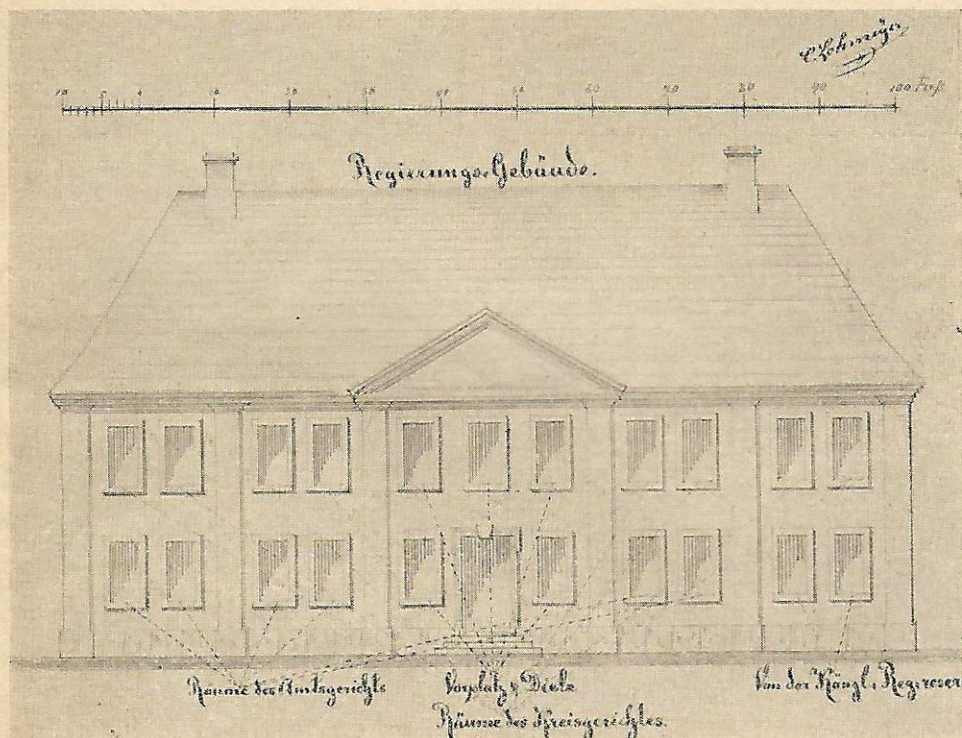 C. Lohmeyer
10 5 0 10 20 30 40 50 60 70 80 90 100 Fuß
Regierungs-Gebäude.
Räume des Amtsgerichts
Vorplatz & Diele
Von der Königl. Reg. reser
Räume des Kreisgerichtes.